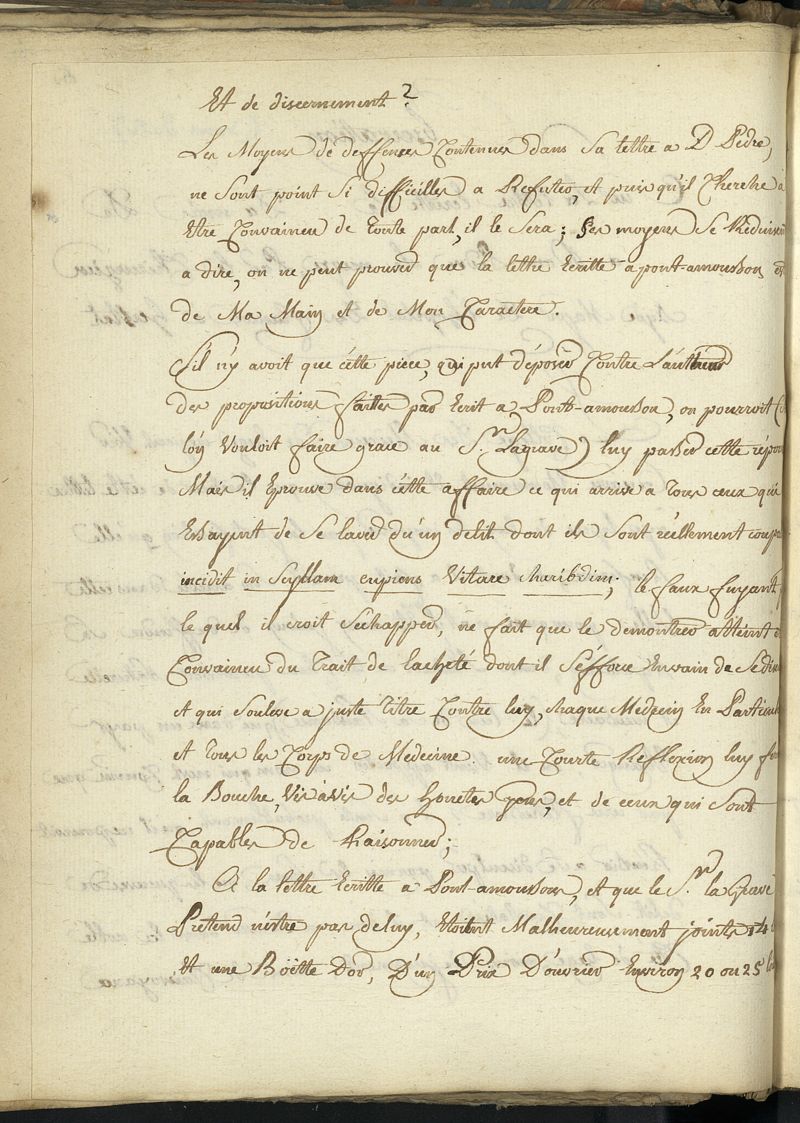 Et de discernement?
Les Moyens de deffences Contenues dans Sa lettre a D Pedre,
ne Sont point Si difficilles a Refuter, et puis qu'il Cherche a
Etre Convaincu de toute part, il le Sera; Ses moyens Se Reduisent
a dire, on ne peut prouver que la lettre Ecritte a pont-amousson, est
de Ma Main et de Mon Caractere.
S'il n'y avoit que cétte piece, qui put déposer Contre L'autheur
des propositions faites par Ecrit a Pont-amousson, on pourroit (si
lón Vouloit faire grace au Sr. Lagrave) luy passer cette répon
Mais il Eprouve dans cétte affaire ce qui arrive a Tous ceux qui
Essayent de Se laver d'un delit dont ils Sont réellement coupa
incidit in Scyllam cupiens Vitare charibdim; le faux fuyant p
le quel il croit Sechapper, ne fait que le demontrer attéint e
Convaincu du Trait de lacheté dont il S'éfforce En vain de Se dis
et qui Souleve a juste titre Contre luy, chaque Medecin En Particul
et tous les Corps de Medecine. une Courte Reflexion luy fer
la Bouche, Vis a vis des honetes gens, et de ceux qui Sont
Capables de Raisonner;
A la lettre Ecritte a Pont-amousson, et que le Sr. la Grave
Pretend n'etre pas de luy, etoient Malheureusement joints 14
et une Boëtte D'or, D'un Prix D'ouvrier Environ 20 ou 25